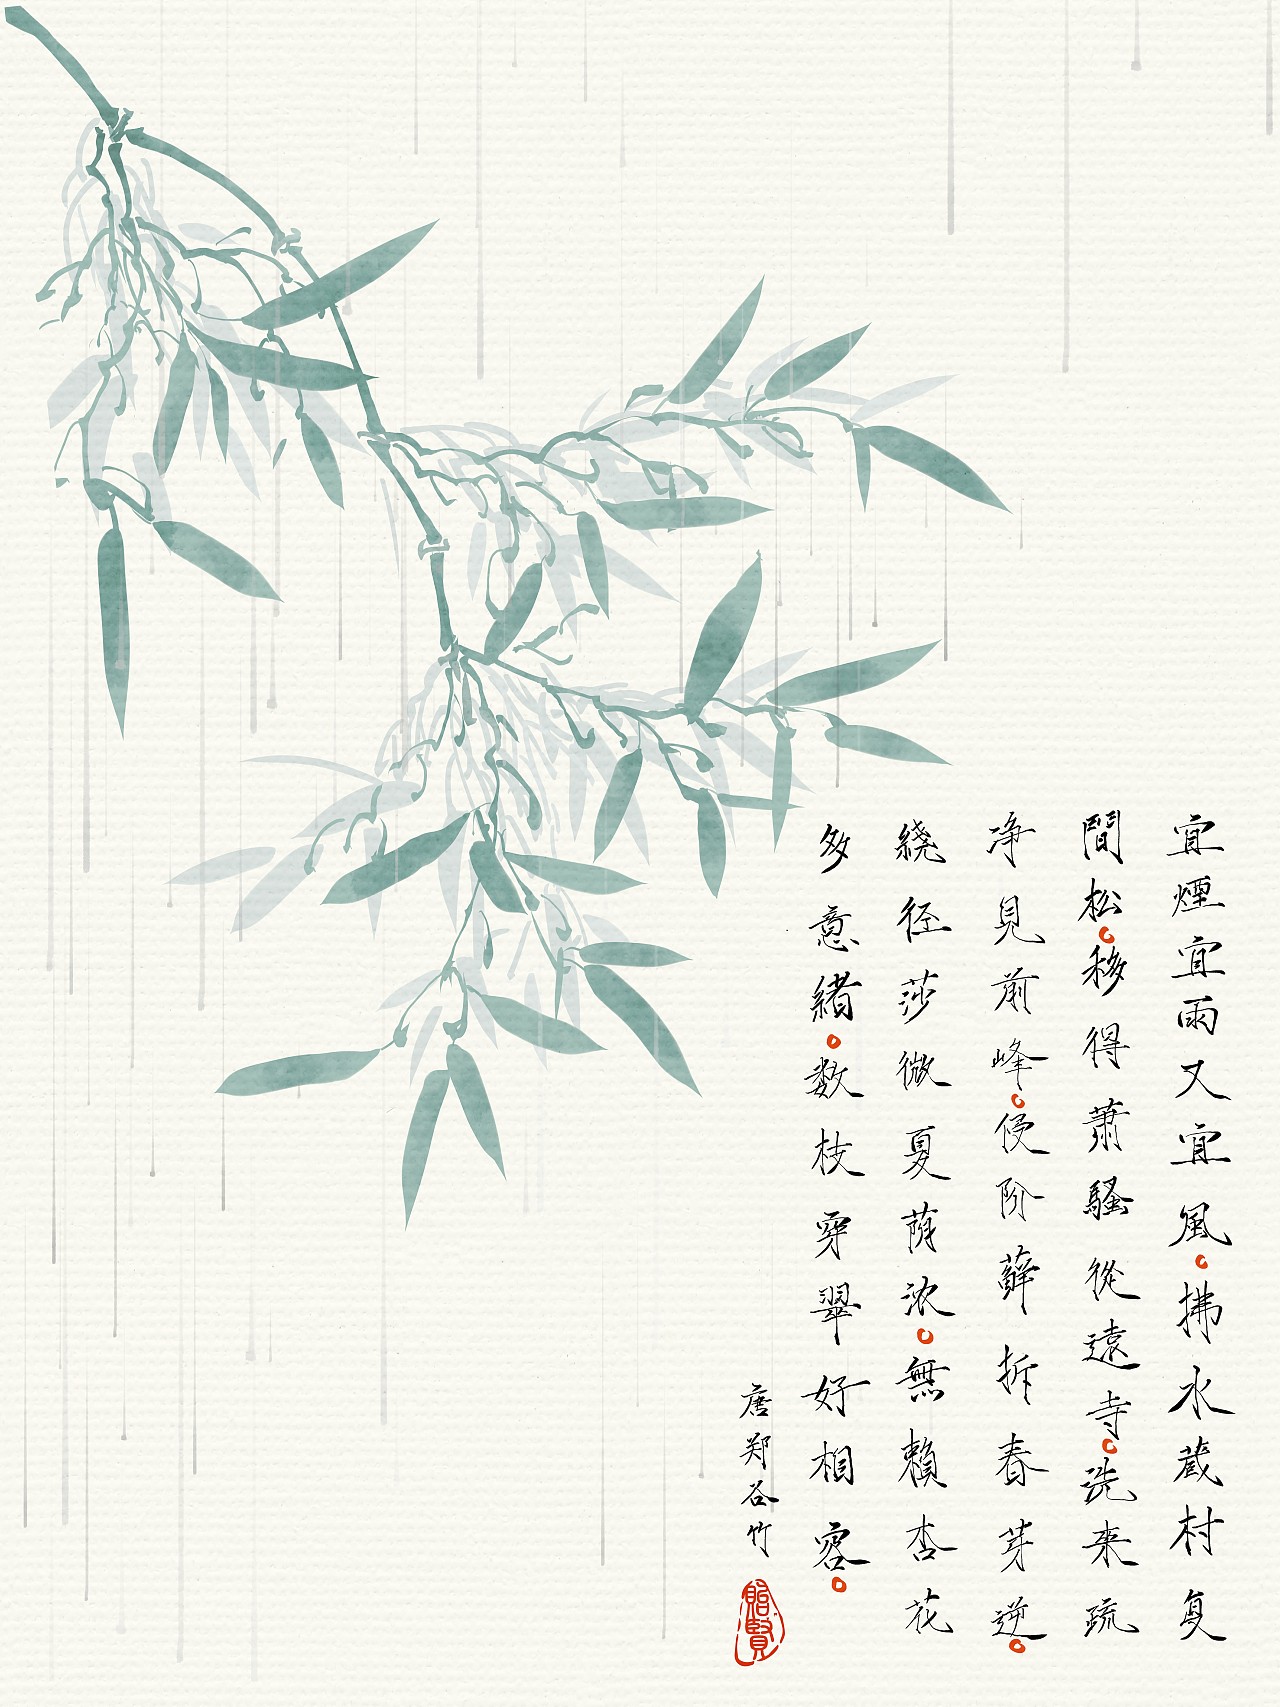 宜煙宜雨又宜風。拂水蔵村复
間松。移得蕭騷從遠寺。洗来疏
净見前峰。侵阶蘚拆春芽迸。
繞径莎微夏荫浓。無賴杏花
多意緒。数枝穿翠好相容。
唐郑谷竹
貽賢